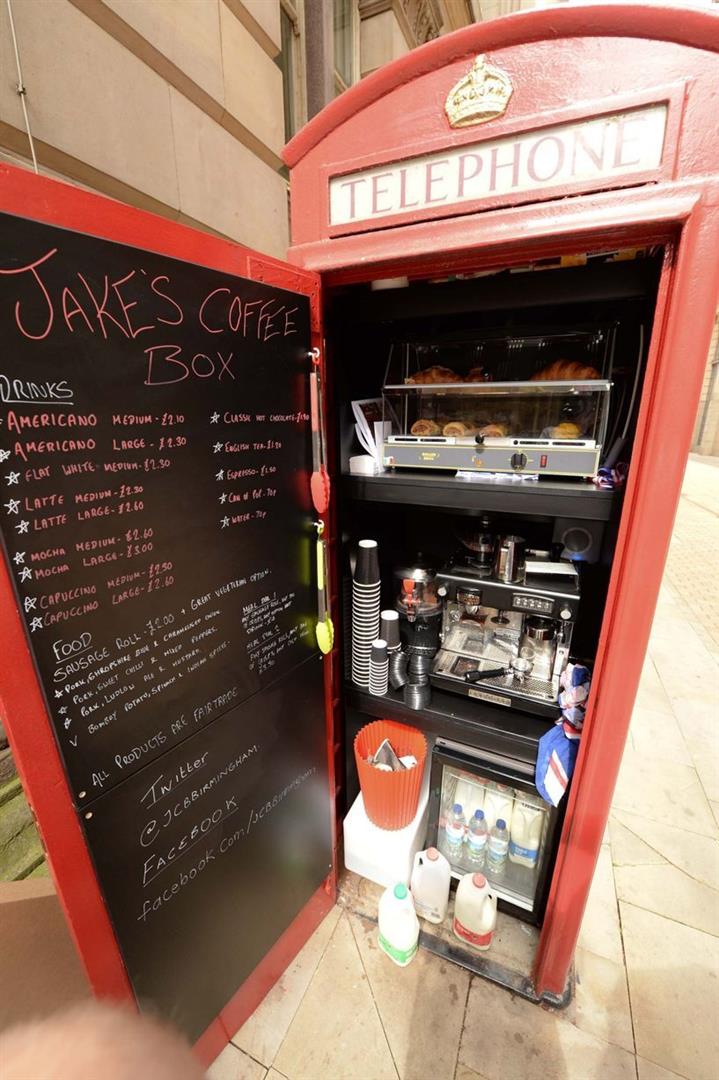 TELEPHONE
JAKE'S COFFEE
BOX
DRINKS
AMERICANO MEDIUM - £2.10
AMERICANO LARGE - £2.30
FLAT WHITE - MEDIUM - £2.30
LATTE MEDIUM - £2.30
LATTE LARGE - £2.60
MOCHA MEDIUM - £2.60
MOCHA LARGE - £3.00
CAPUCCINO MEDIUM - £2.30
CAPUCCINO LARGE - £2.60
CLASSIC HOT CHOCOLATE -
ENGLISH TEA -
ESPRESSO -
CAN OF POP - 70p
WATER - 70p
FOOD
SAUSAGE ROLL - £2.00 + GREAT VEGETARIAN OPTION.
PORK, SHROPSHIRE BLUE & CARAMELISED ONION.
PORK, SWEET CHILLI & MIXED PEPPERS.
PORK, LUDLOW ALE & MUSTARD.
V BOMBAY POTATO, SPINACH & INDIAN SPICES.
MEAL DEAL
ALL PRODUCTS ARE FAIRTRADE
TWITTER
@JCBBIRMINGHAM.
FACEBOOK
facebook.com/JCBBIRMINGHAM